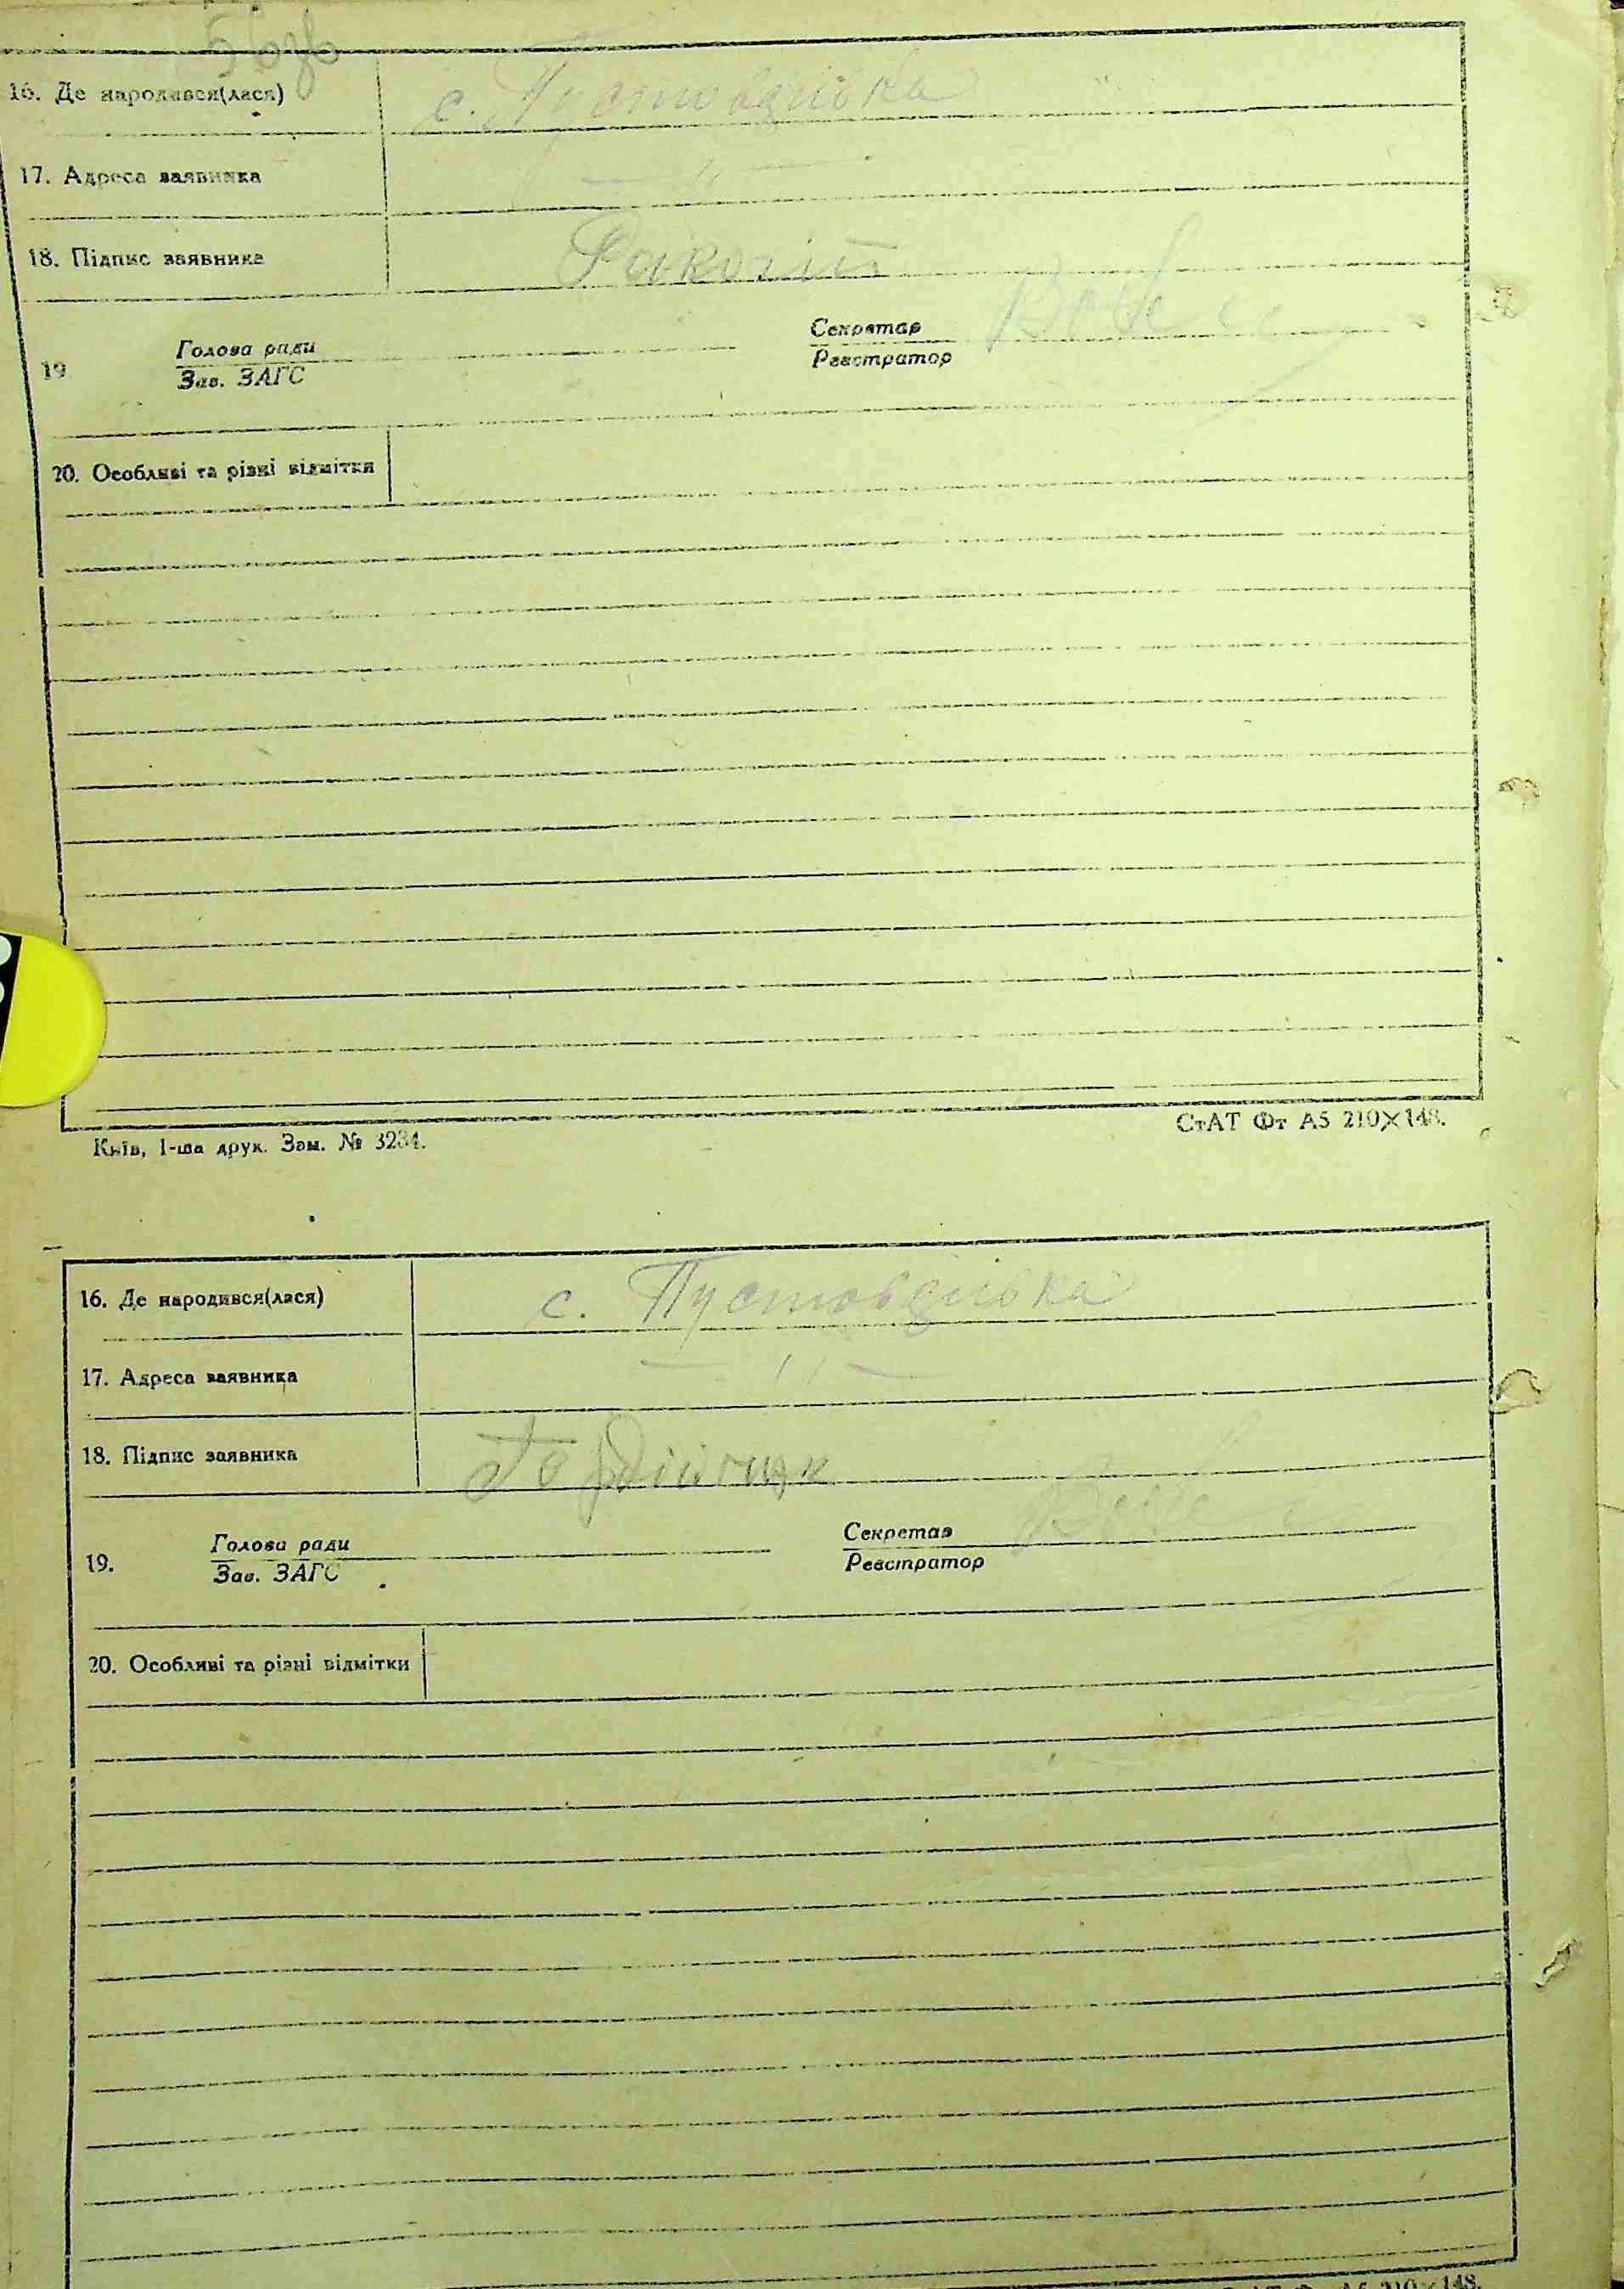 16. Де народився(лася) с. Пустовдівка
17. Адреса заявника — " —
18. Підпис заявника
Голова ради Секретар
19
Зав. ЗАГС Реєстратор
20. Особливі та різні відмітки
СтАТ Фт А5 210×148.
Київ, 1-ша друк. Зам. № 3234.
16. Де народився(лася) с. Пустовдівка
17. Адреса заявника — " —
18. Підпис заявника Гордійчук
Голова ради Секретар
19.
Зав. ЗАГС Реєстратор
20. Особливі та різні відмітки
А5 210×148.